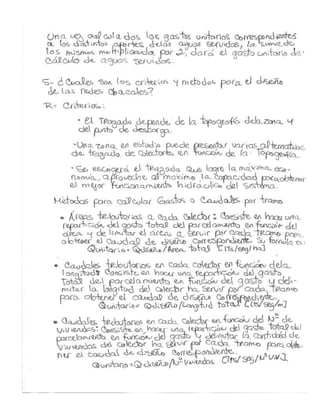 Una vez calculados los gastos unitarios correspondientes
a los distintos aportes de las aguas servidas, la suma de
los mismos multiplicada por 2, dará el gasto unitario de
Cálculo de aguas servidas.
5- ¿Cuales son los criterios y metodos para el diseño
de las redes cloacales?
R= Criterios:
• El Trazado depende de la topografía de la zona y
del punto de descarga.
• Una zona en estudio puede presentar varias alternativas
de trazado de Colectores en función de la Topografía.
• Se escogerá el Trazado que logre la máxima eco-
nomía, aproveche al máximo la capacidad para obtener
el mejor funcionamiento hidráulico del Sistema.
Metodos para calcular Gastos o Caudales por tramo
• Áreas tributarias a cada Colector: Consiste en hacer una
repartición del gasto total del parcelamiento en función del
área y de limitar el área a servir por cada Tramo para
obtener el caudal de diseño Correspondiente. Su formula es:
Qunitario = Qdiseño/Area Total [Lts/seg/ha]
• Caudales tributarios en cada colector en función de la
longitud: Consiste en hacer una repartición del gasto
Total del parcelamiento en función del gasto y deli-
mitar la longitud del colector ha servir por cada Tramo
para obtener el caudal de diseño Correspondiente.
Qunitario = Qdiseño/Longitud Total [Lts/seg/m]
• Caudales tributarios en cada colector en función del N° de
viviendas: Consiste en hacer una repartición del gasto total del
parcelamiento en función del gasto y delimitar la cantidad de
viviendas del colector ha servir por cada tramo para obte-
ner el caudal de diseño Correspondiente.
Qunitario = Qdiseño/N° Viviendas [Lts/seg/N° Viv].